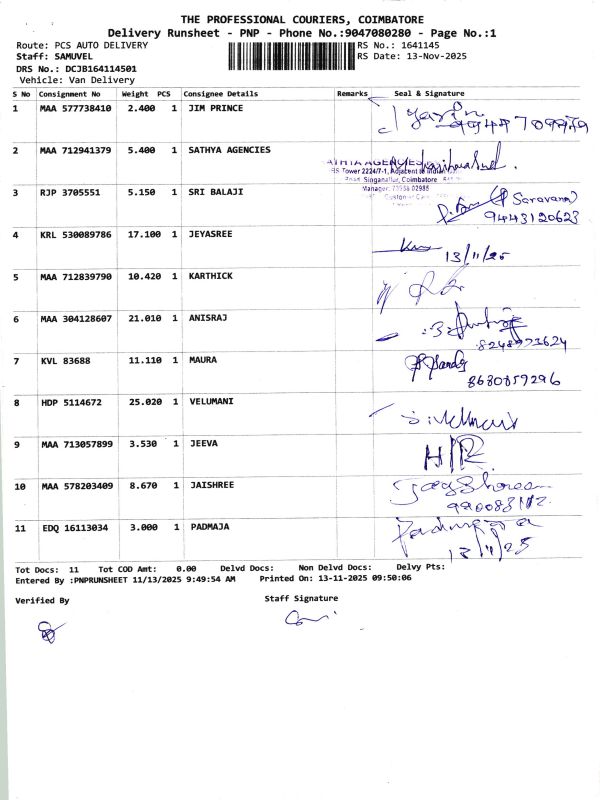 THE PROFESSIONAL COURIERS, COIMBATORE
Delivery Runsheet - PNP - Phone No.:9047080280 - Page No.:1
Route: PCS AUTO DELIVERY RS No.: 1641145
Staff: SAMUVEL RS Date: 13-Nov-2025
DRS No.: DCJB164114501
Vehicle: Van Delivery
S No Consignment No Weight PCS Consignee Details Remarks Seal & Signature
1 MAA 577738410 2.400 1 JIM PRINCE
2 MAA 712941379 5.400 1 SATHYA AGENCIES
SATHYA AGENCIES
Tower 2224/7-1, Adjacent to Indian
Road, Singanallur, Coimbatore
Manager: 73958 02985
Customer Care
3 RJP 3705551 5.150 1 SRI BALAJI
Saravana)
9443120623
4 KRL 530089786 17.100 1 JEYASREE
13/11/25
5 MAA 712839790 10.420 1 KARTHICK
6 MAA 304128607 21.010 1 ANISRAJ
8248973624
7 KVL 83688 11.110 1 MAURA
8680859296
8 HDP 5114672 25.020 1 VELUMANI
9 MAA 713057899 3.530 1 JEEVA
10 MAA 578203409 8.670 1 JAISHREE
11 EDQ 16113034 3.000 1 PADMAJA
Padmaja
13/11/25
Tot Docs: 11 Tot COD Amt: 0.00 Delvd Docs: Non Delvd Docs: Delvy Pts:
Entered By :PNPRUNSHEET 11/13/2025 9:49:54 AM Printed On: 13-11-2025 09:50:06
Verified By Staff Signature